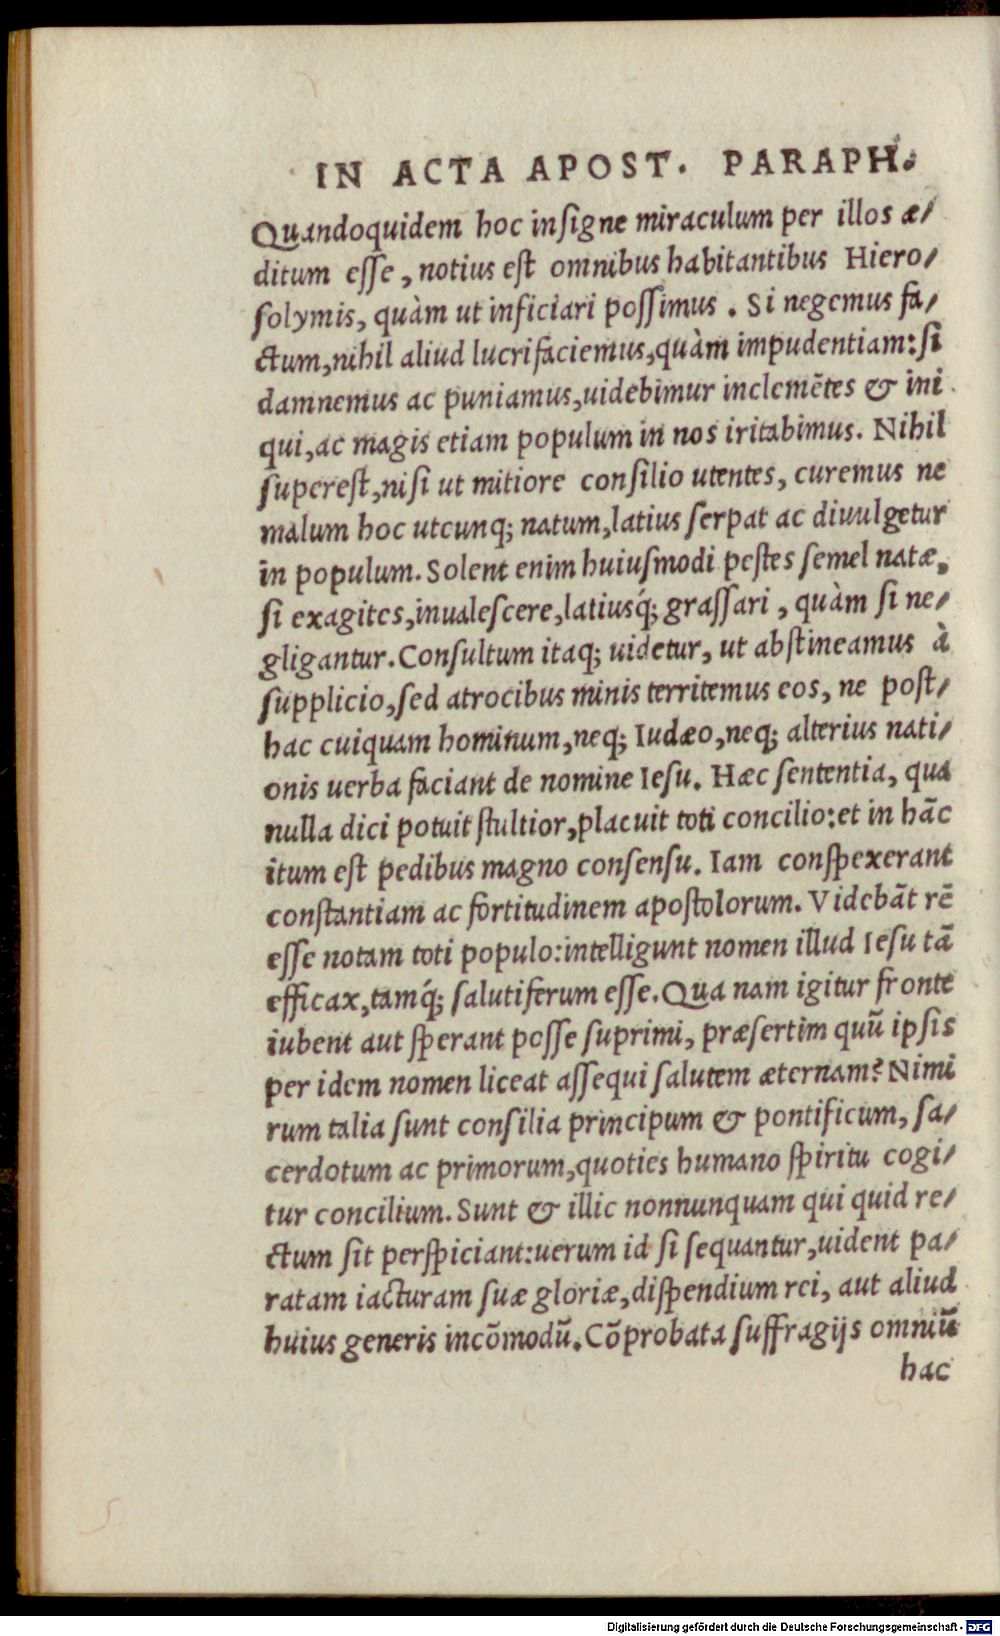 IN ACTA APOST. PARAPH.
Quandoquidem hoc insigne miraculum per illos æ/
ditum esse, notius est omnibus habitantibus Hiero/
solymis, quàm ut inficiari possimus. Si negemus fa/
ctum, nihil aliud lucrifaciemus, quàm impudentiam: si
damnemus ac puniamus, uidebimur inclemẽtes & ini
qui, ac magis etiam populum in nos iritabimus. Nihil
superest, nisi ut mitiore consilio utentes, curemus ne
malum hoc utcunq; natum, latius serpat ac diuulgetur
in populum. Solent enim huiusmodi pestes semel natæ,
si exagites, inualescere, latiusq́; grassari, quàm si ne/
gligantur. Consultum itaq; uidetur, ut abstineamus à
supplicio, sed atrocibus minis territemus eos, ne post/
hac cuiquam hominum, neq; Iudæo, neq; alterius nati/
onis uerba faciant de nomine Iesu. Hæc sententia, qua
nulla dici potuit stultior, placuit toti concilio: et in hãc
itum est pedibus magno consensu. Iam conspexerant
constantiam ac fortitudinem apostolorum. Videbãt rẽ
esse notam toti populo: intelligunt nomen illud Iesu tã
efficax, tamq́; salutiferum esse. Qua nam igitur fronte
iubent aut sperant posse suprimi, præsertim quũ ipsis
per idem nomen liceat assequi salutem æternam? Nimi
rum talia sunt consilia principum & pontificum, sa/
cerdotum ac primorum, quoties humano spiritu cogi/
tur concilium. Sunt & illic nonnunquam qui quid re/
ctum sit perspiciant: uerum id si sequantur, uident pa/
ratam iacturam suæ gloriæ, dispendium rei, aut aliud
huius generis incõmodũ. Cõprobata suffragijs omniũ
hac
Digitalisierung gefördert durch die Deutsche Forschungsgemeinschaft - DFG